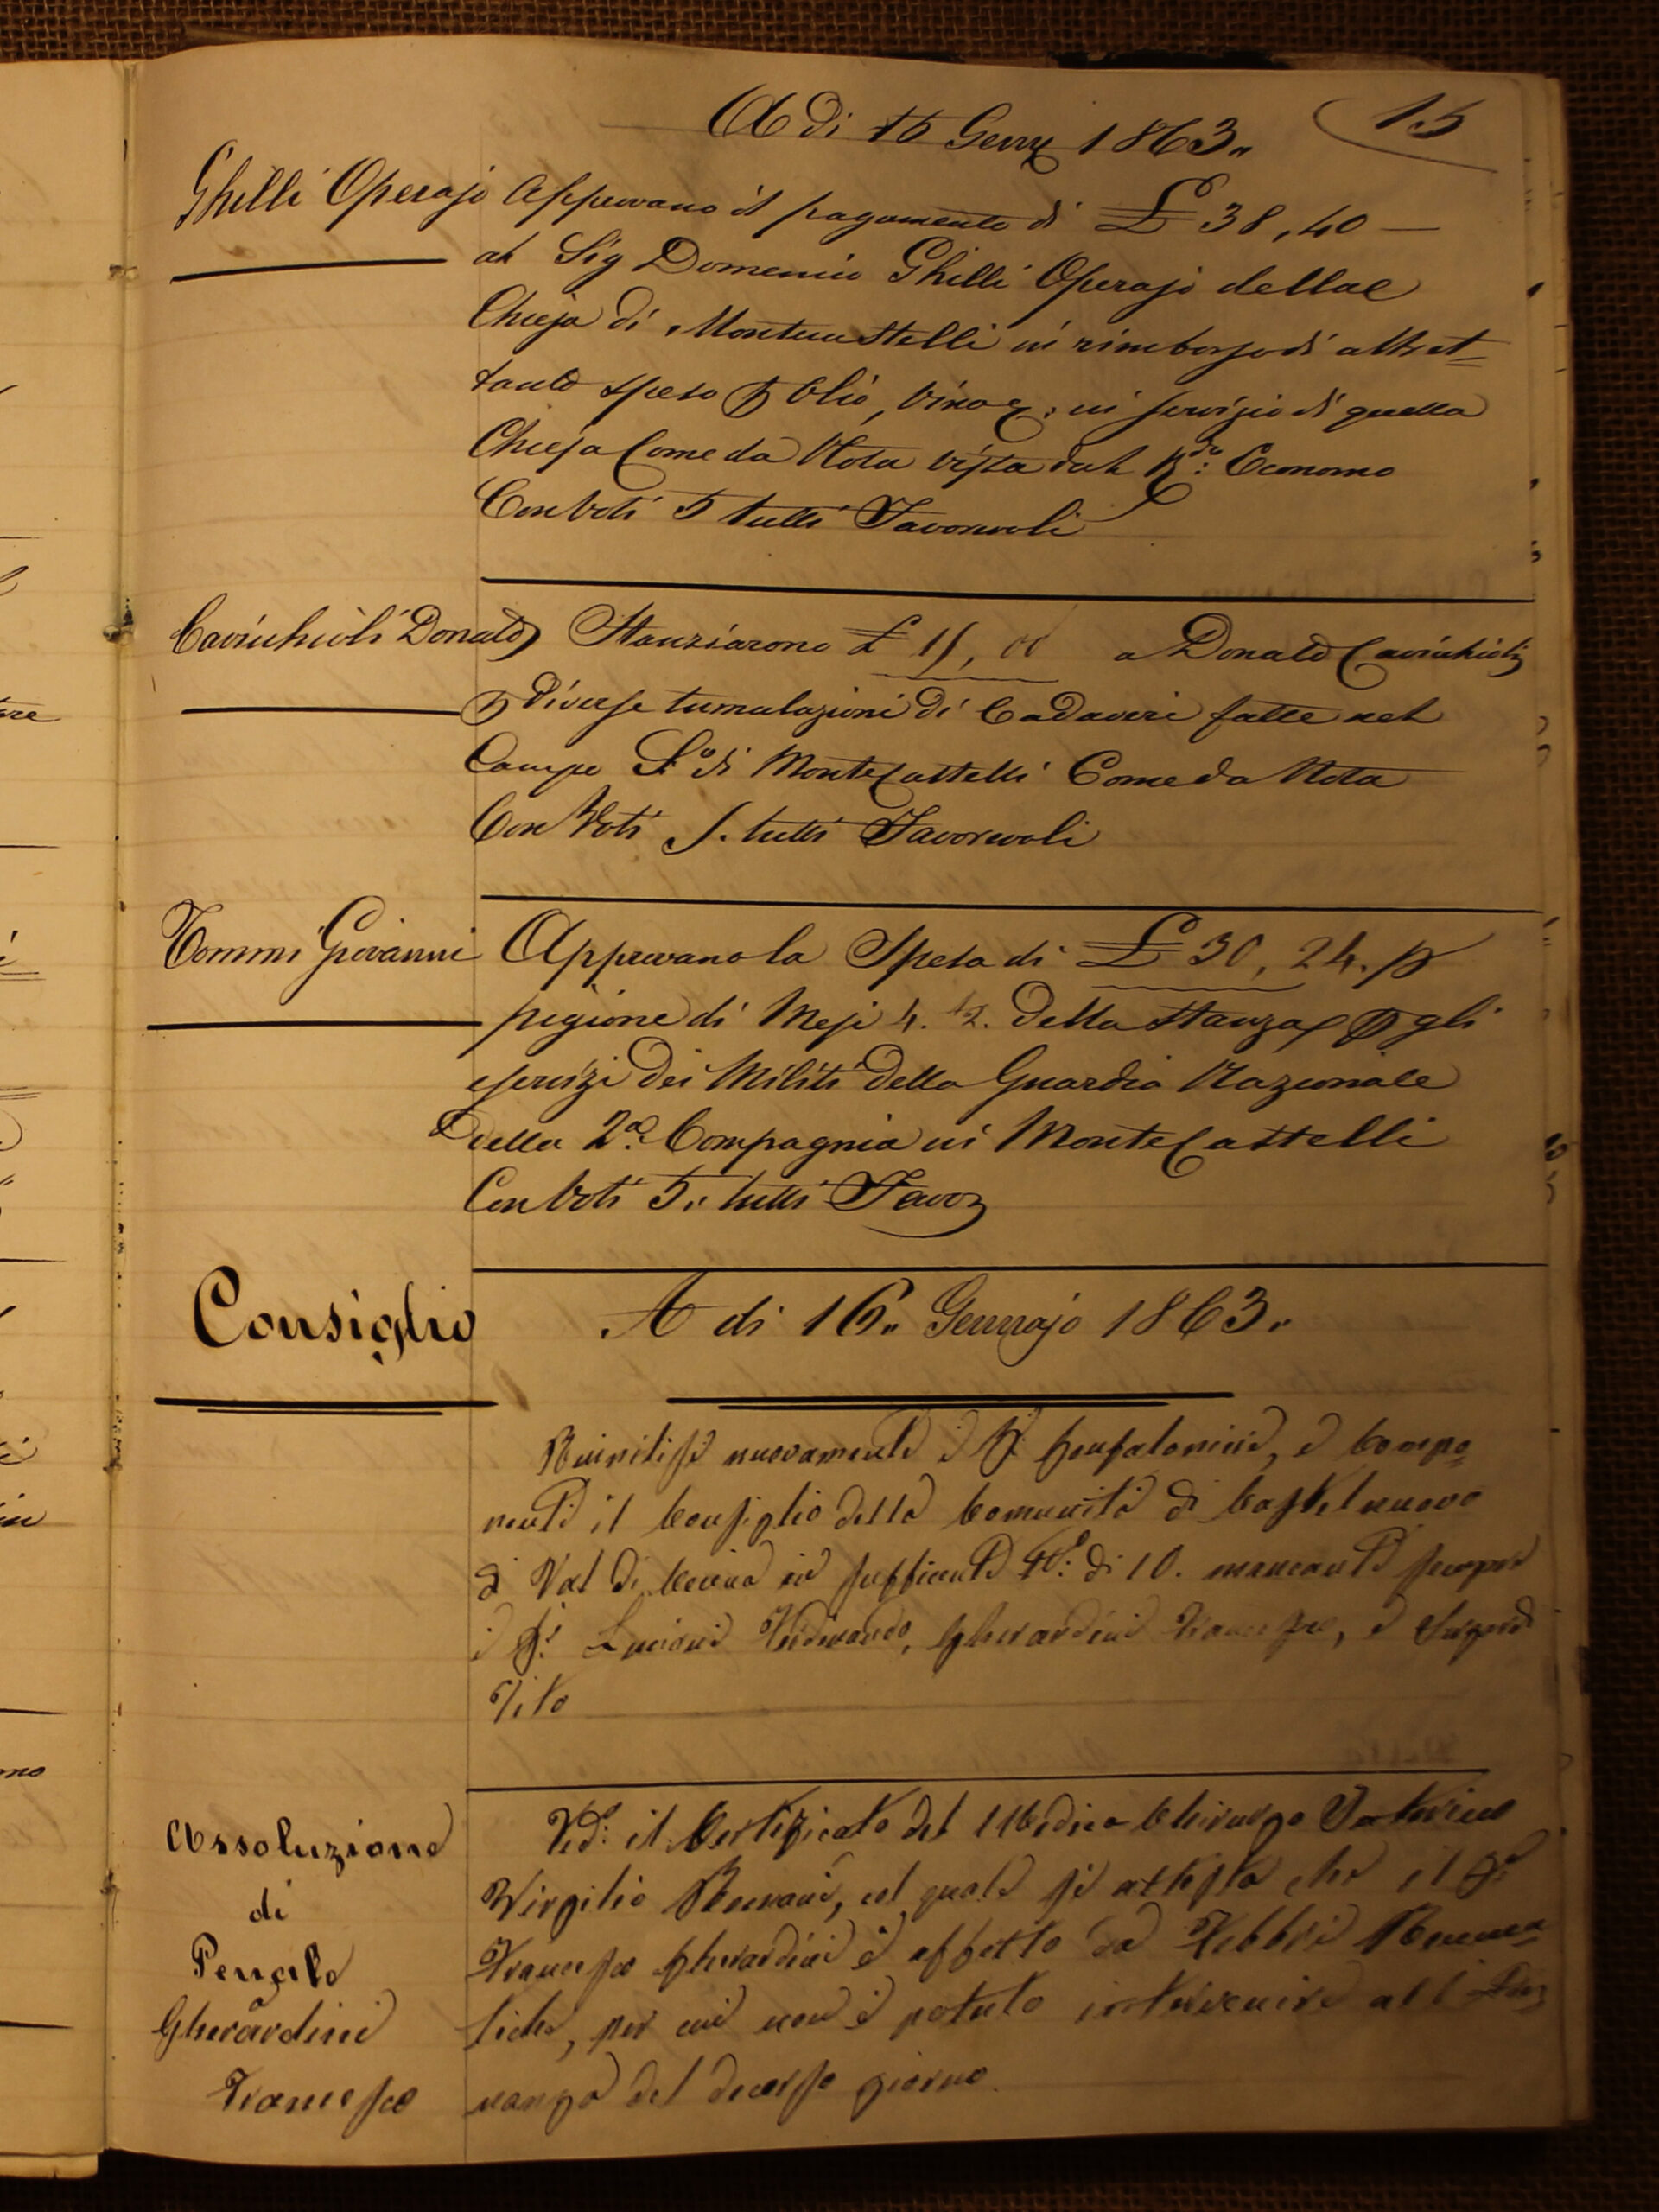 A di 15 Genn 1863„
15
Ghilli Operajo
Approvano il pagamento di £ 38,40 —
al Sig Domenico Ghilli Operajo della
Chiesa di Montecastelli in rimborso di altret=
tanto speso p Olio, Vino &: in servizio di quella
Chiesa Come da Nota vista dal R:do Economo
Con Voti 5 tutti Favorevoli
Cavicchioli Donato
Stanziarono £ 15,00 a Donato Cavicchioli
p diverse tumulazioni di Cadaveri fatte nel
Campo S.o di MonteCastelli Come da Nota
Con Voti 5. tutti Favorevoli
Tommi Giovanni
Approvano la Spesa di £ 30,24. p
pigione di Mesi 4. 1/2. della Stanza p gli
esercizi dei Militi della Guardia Nazionale
della 2a. Compagnia in MonteCastelli
Con Voti 5„ tutti Favor
Consiglio
A di 16„ Gennajo 1863„
Riunitisi nuovamente i SS: Gonfaloniere, e Compo=
nenti il Consiglio della Comunità di Castelnuovo
di Val di Cecina in sufficiente No: di 10. mancanti sempre
i SS: Ferdinando, Gherardini Francesco, e Serpeni
Tito
Assoluzione
di
Penale
Gherardini
Francesco
Ved:o il Certificato del Medico Chirurgo
Virgilio, col quale si attesta che il Sr
Francesco Gherardini è affetto da Febbri Reuma=
tiche, per cui non è potuto intervenire all' Adu=
nanza del decorso giorno